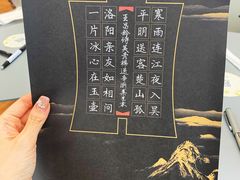 寒雨连江夜入吴
平明送客楚山孤
王昌龄诗芙蓉楼送辛渐
洛阳亲友如相问
一片冰心在玉壶